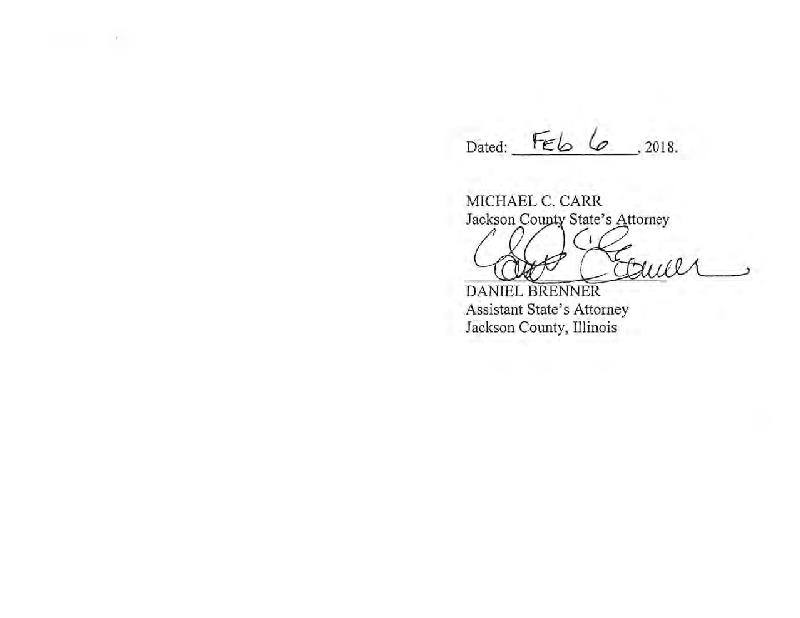 Dated: Feb 6, 2018.
MICHAEL C. CARR
Jackson County State's Attorney
DANIEL BRENNER
Assistant State's Attorney
Jackson County, Illinois